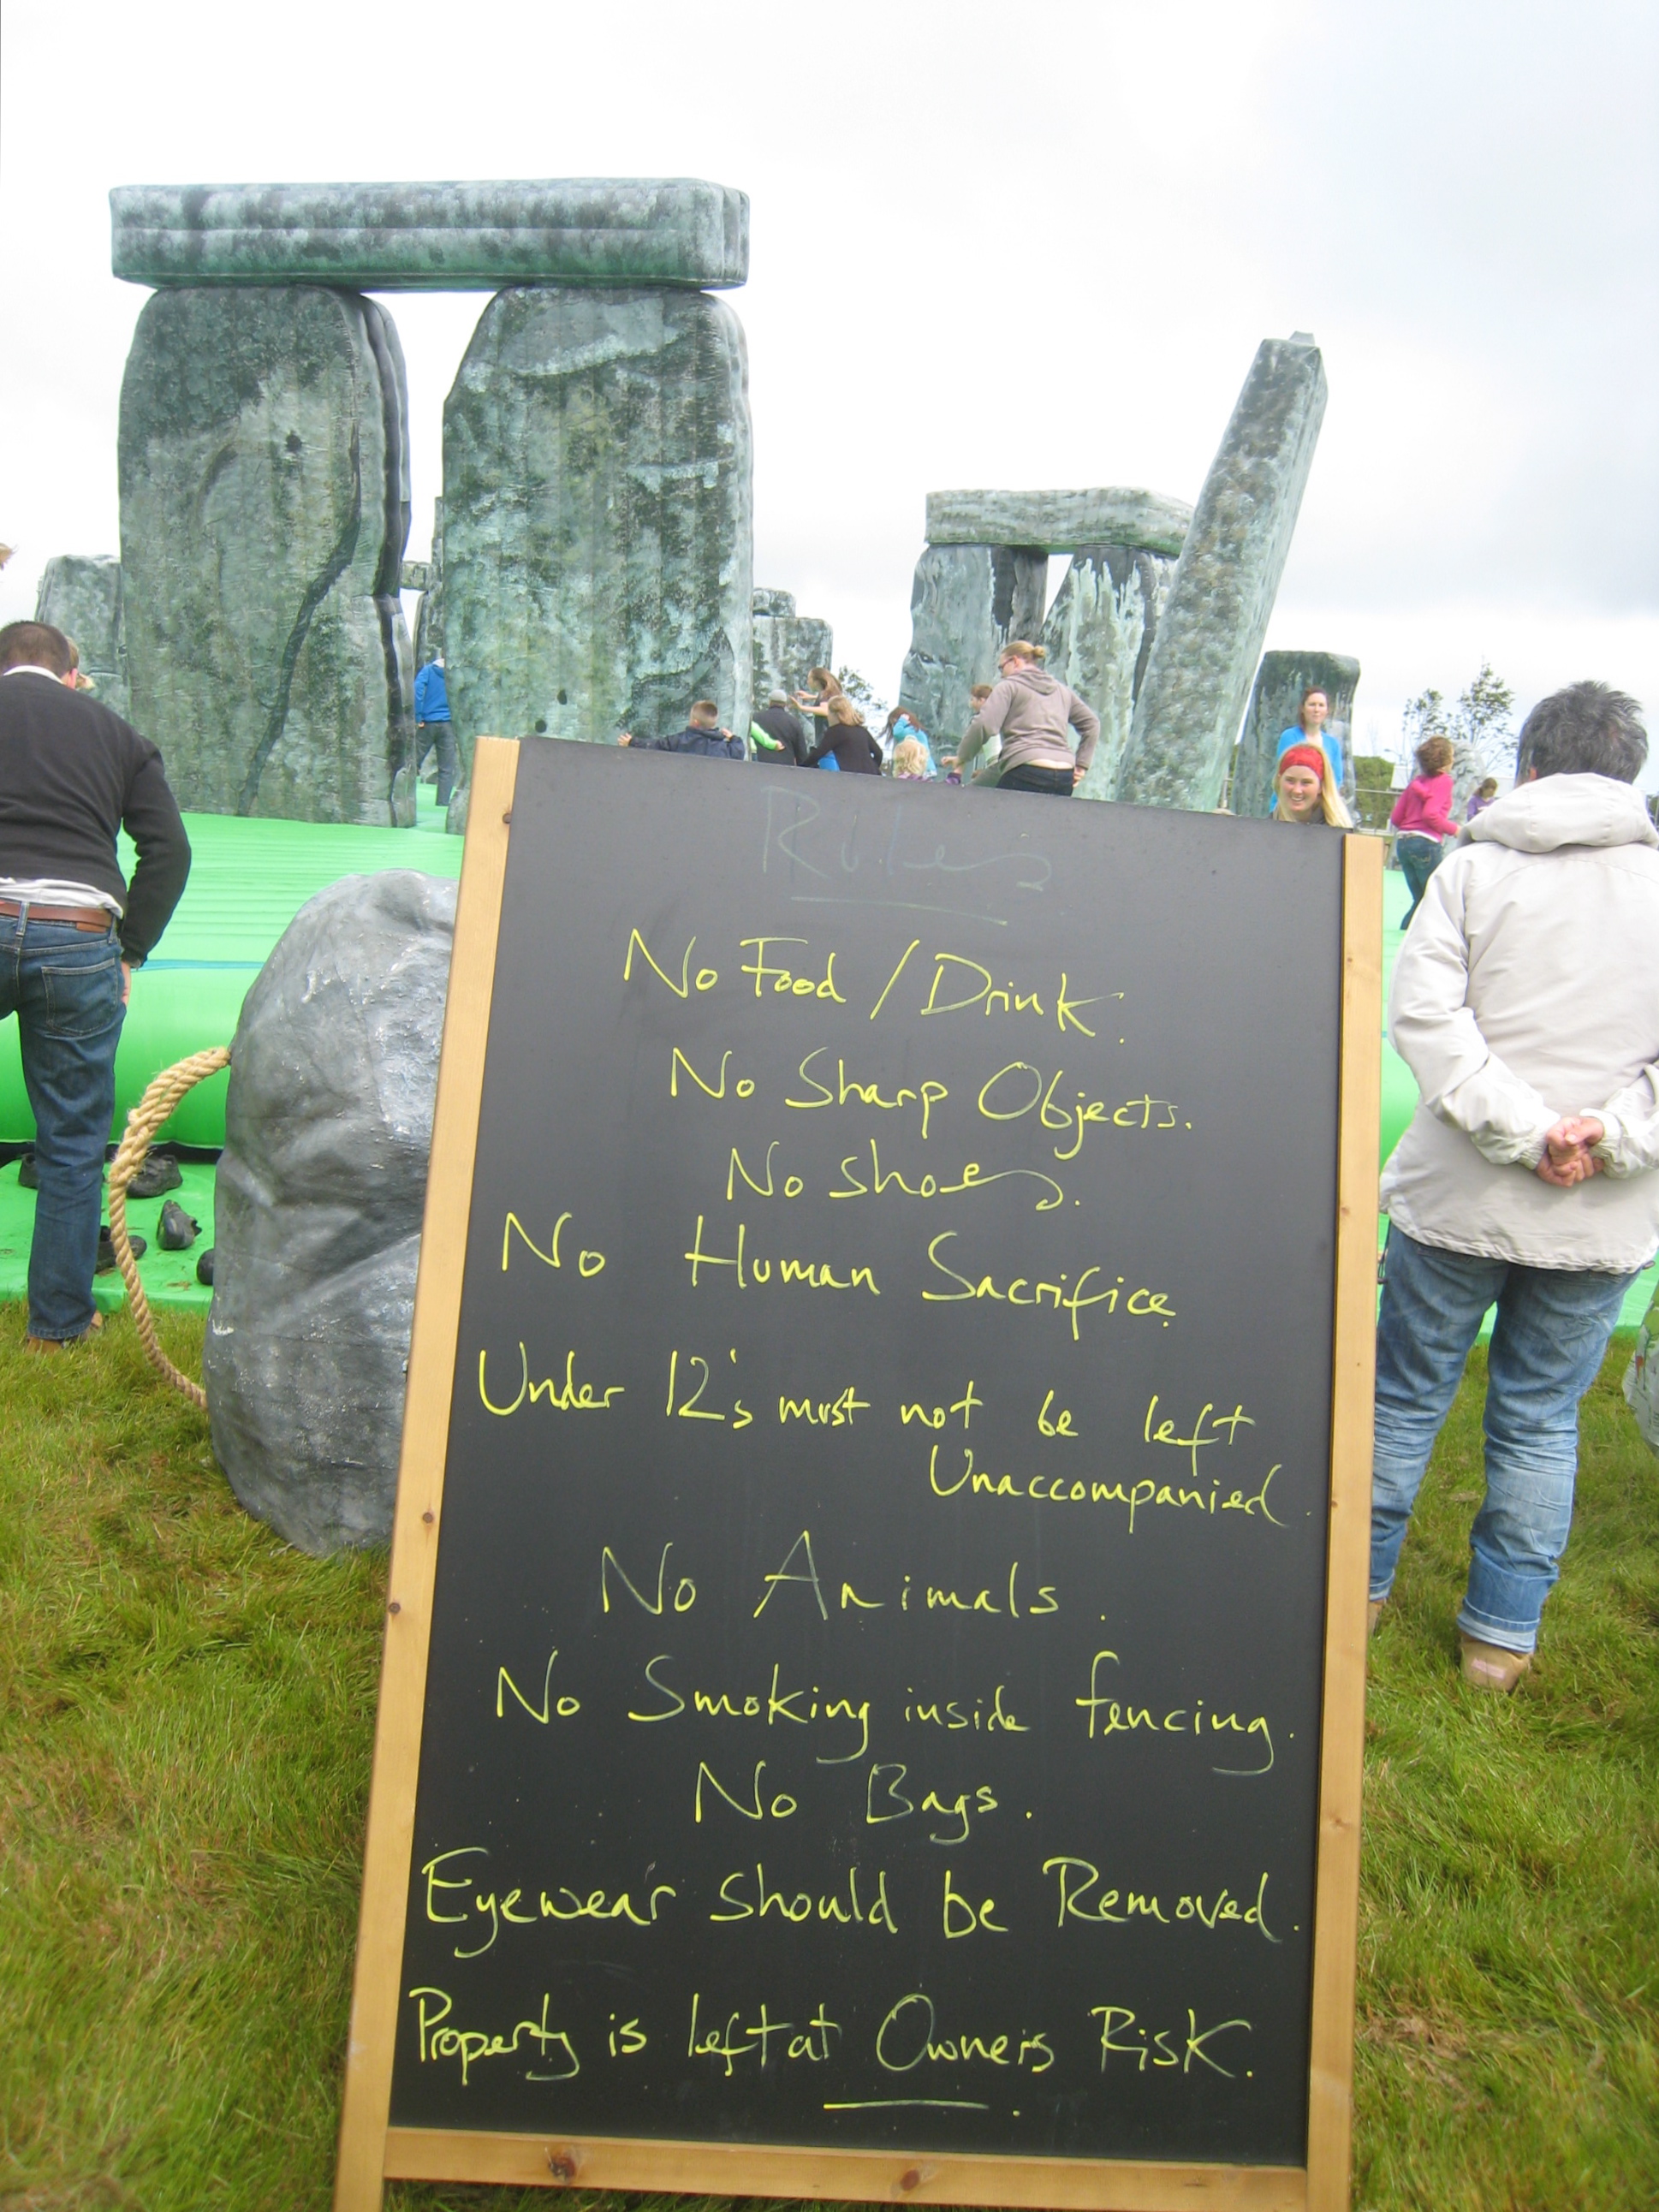 Rules
No Food / Drink.
No Sharp Objects.
No shoes.
No Human Sacrifice.
Under 12's must not be left
Unaccompanied.
No Animals.
No Smoking inside fencing.
No Bags.
Eyewear should be Removed.
Property is left at Owners Risk.